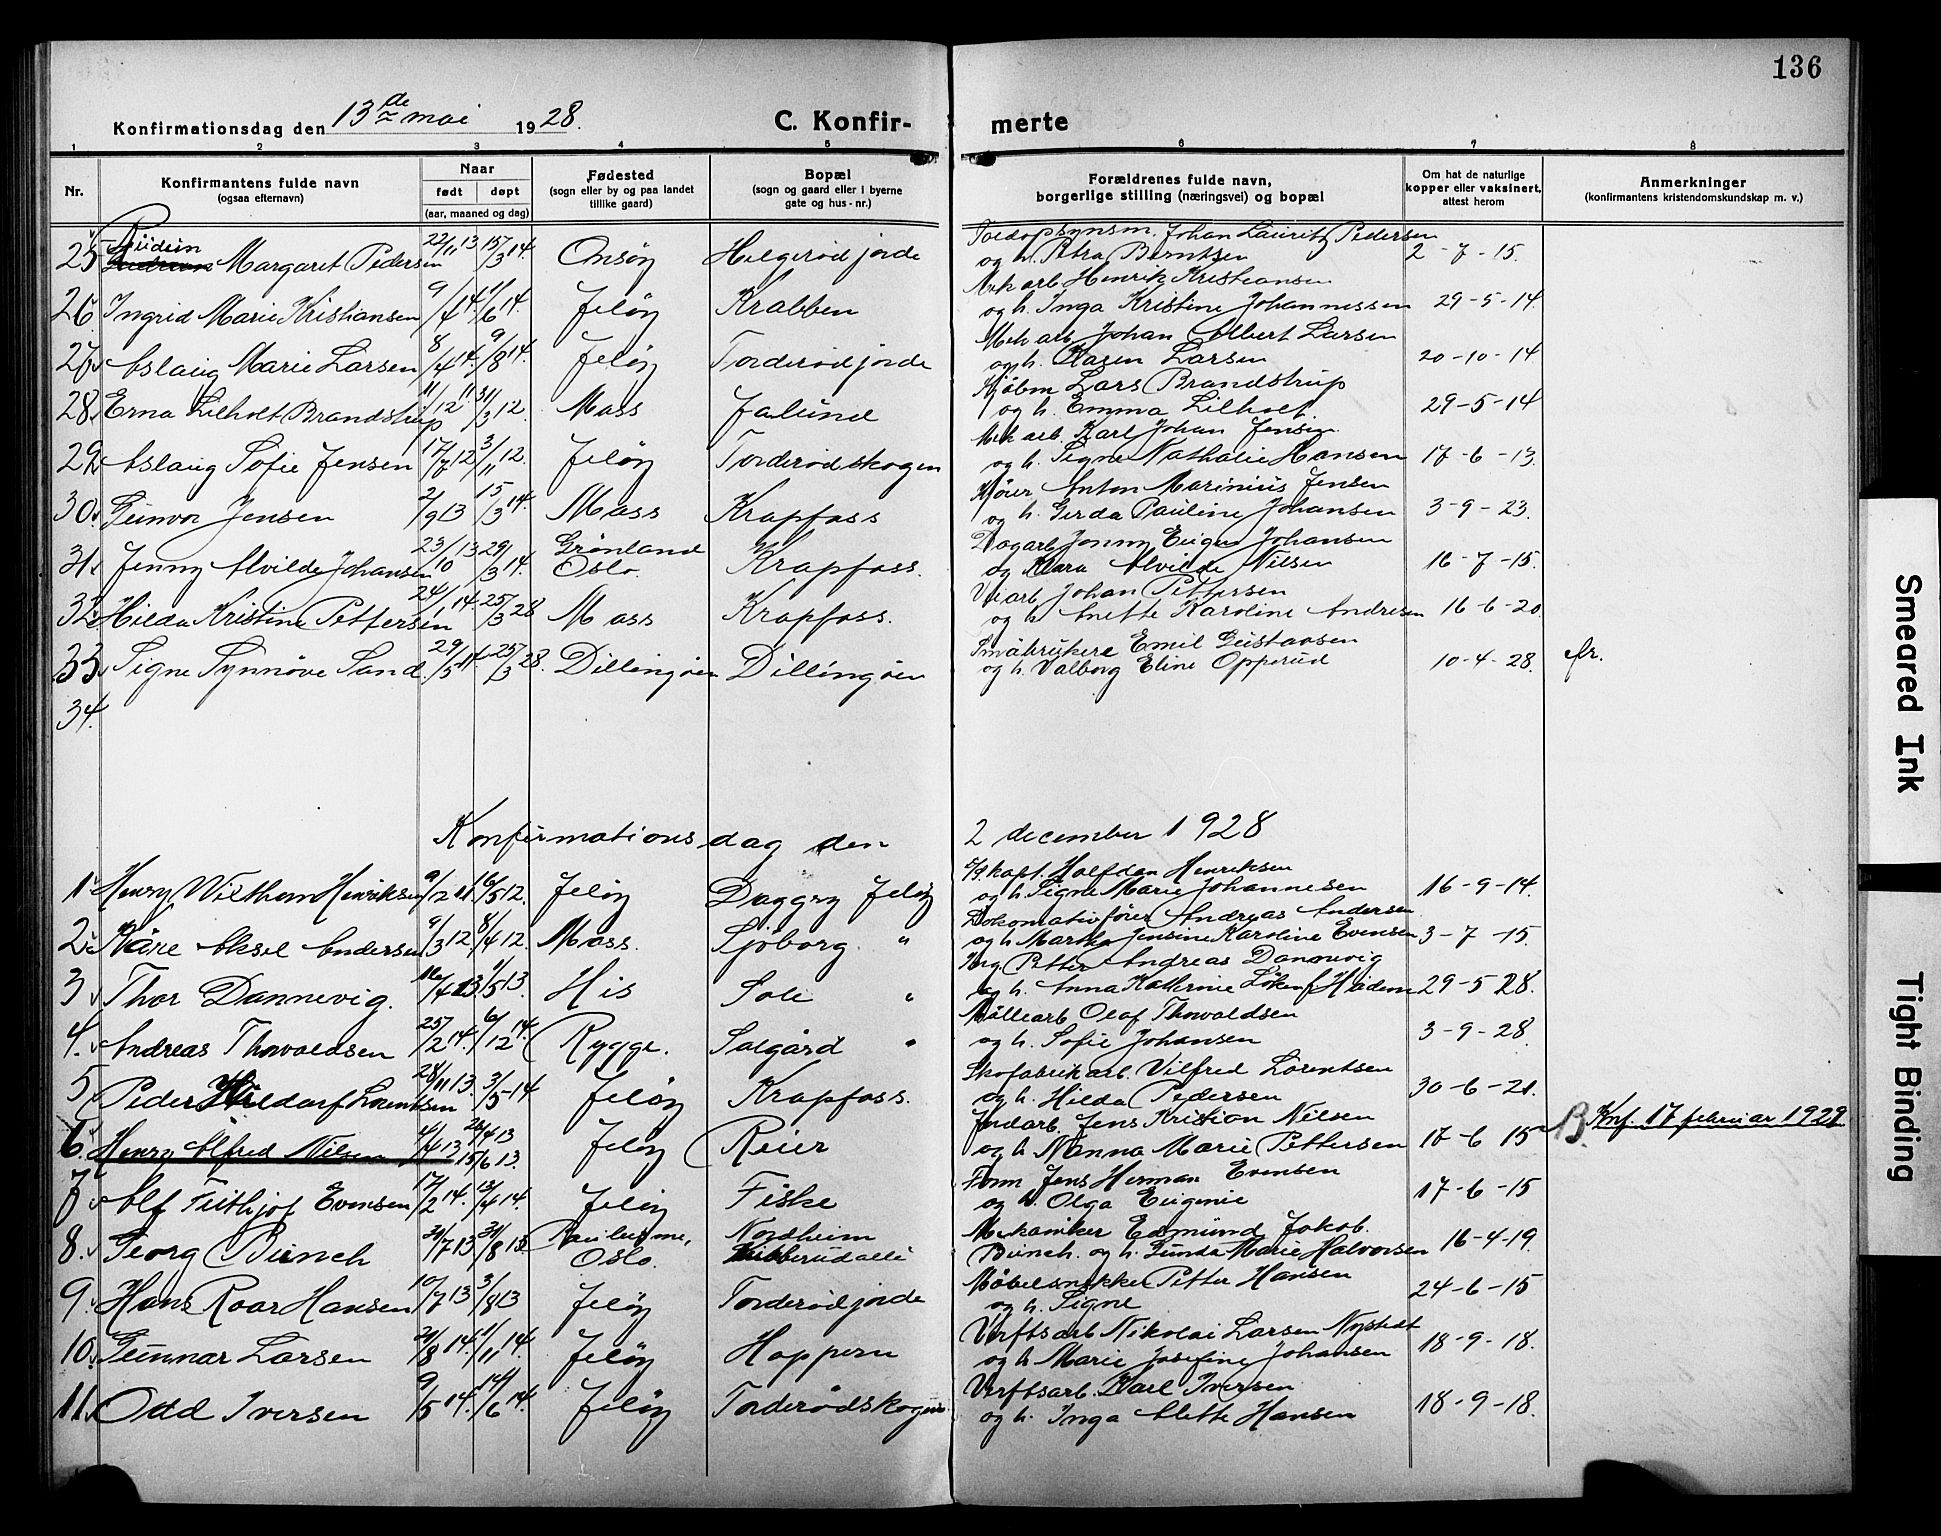 136
Konfirmationsdag den 13de mai 1928.
C. Konfir-
merte
1 2 3 4 5 6 7 8
Nr.
Konfirmantens fulde navn
(ogsaa efternavn)
Naar
født døpt
(aar, maaned og dag)
Fødested
(sogn eller by og paa landet
tillike gaard)
Bopæl
(sogn og gaard eller i byerne
gate og hus-nr.)
Forældrenes fulde navn,
borgerlige stilling (næringsvei) og bopæl
Om hat de naturlige
kopper eller vaksinert,
attest herom
Anmerkninger
(konfirmantens kristendomskundskap m. v.)
25 Margaret Pedersen 22/11 13 15/3 14. Onsøy Helgerødjorde Johan Lauritz Pedersen
og h. Petra Berntsen 2-7-15.
26. Ingrid Marie Kristiansen 9/4 14. 1/6 14. Jeløy Krabben Mek arb Henrik Kristiansen
og h. Inga Kristine Johannessen 29-5-14.
27. Aslaug Marie Larsen 8/4 14. 9/8 14. Jeløy Torderødjorde Mek arb. Johan Albert Larsen
og h. Larsen 20-10-14
28. Erna Lilholt Brandstrup 11/12 11. 31/3 12 Moss Jalund Kjøbm Lars Brandstrup
og h. Emma Lilholt. 29-5-14
29. Aslaug Sofie Jensen 17/7 12 3/11 12. Jeløy Torderødskogen Mek arb. Karl Johan Jensen.
og h. Signe Nathalie Hansen 17-6-13.
30. Gunvor Jensen 2/9 13 15/3 14. Moss Krapfoss Kjører Anton Marinius Jensen
og h. Gerda Pauline Johansen 3-9-23.
31. Jenny Alvilde Johansen 23/10 13 29/3 14. Grønland
Oslo. Krapfoss. Dagarb Jonny Eugen Johansen
og Klara Alvilde Nilsen 16-7-15.
32. Hilda Kristine Pettersen 24/1 14. 25/3 28 Moss Krapfoss. Veiarb Johan Pettersen
og h Anette Karoline Andresen 16-6-20
33. Signe Synnøve Sand. 29/5 14. 25/3 28. Dillingøen Dillingøen Småbrukere Emil Gustavsen
og h. Valborg Eline Opperud 10-4-28. fr.
34.
Konfirmations dag den 2 december 1928
1. Henry Wilthem Henriksen 9/2 11. 16/5 12. Jeløy Daggry Jeløy S/S kapt. Halfdan Henriksen
og h. Signe Marie Johannesen 16-9-14.
2. Kåre Aksel Andersen 9/3 12. 8/4 12. Moss. Sjøborg. " Lokomativfører Andreas Andersen
og h Martha Jensine Karoline Evensen 3-7-15.
3. Thor Dannevig. 16/4 13 1/5 13. His Sole " Ing Petter Andreas Dannevig
og h. Anna Katherine 29-5 28.
4. Andreas Thowaldsen 25/2 14. 6/12 14. Rygge. Solgård " Møllearb Olaf Thowaldsen
og h. Sofie Johansen 3-9-28.
5. Peder Hildarf Lorentsen 28/11 13. 3/5 14 Jeløy Krapfoss. Skofabrik arb. Vilfred Lorentsen
og h. Hilda Pedersen 30-6-21.
6. Henry Alfred Nilsen 4/4 13 15/6 13. Jeløy Reier Jordarb. Jens Kristian Nilsen
og h Nanna Marie Pettersen 17-6 15 B Knf. 17 februar 1929.
7. Alf Frithjof Evensen 17/2 14. 13/4 14. Jeløy Fiske Form Jens Herman Evensen
og h. Olga Eugenie 17-6-15
8. Georg Bunch 31/7 13 31/8 13. Paulus me,
Oslo. Nordheim Mekaniker Edmund Jakob.
Bunch. og h. Gunda Marie Halvorsen 16-4-19.
9. Hans Roar Hansen 10/7 13 3/8 13 Jeløy Torderødjorde Møbelsnekker Petter Hansen
og h. Signe 24-6-15
10. Gunnar Larsen 31/8 14. 1/11 14. Jeløy Hoppern Verftsarb Nikolai Larsen Nystedt
og h Marie Josefine Johansen 18-9-18.
11. Odd Iversen 9/5 14. 14/6 14. Jeløy Torderødskogen Verftsarb. Karl Iversen
og h. Inga Alette Hansen 18-9-18.
Smeared Ink
Tight Binding